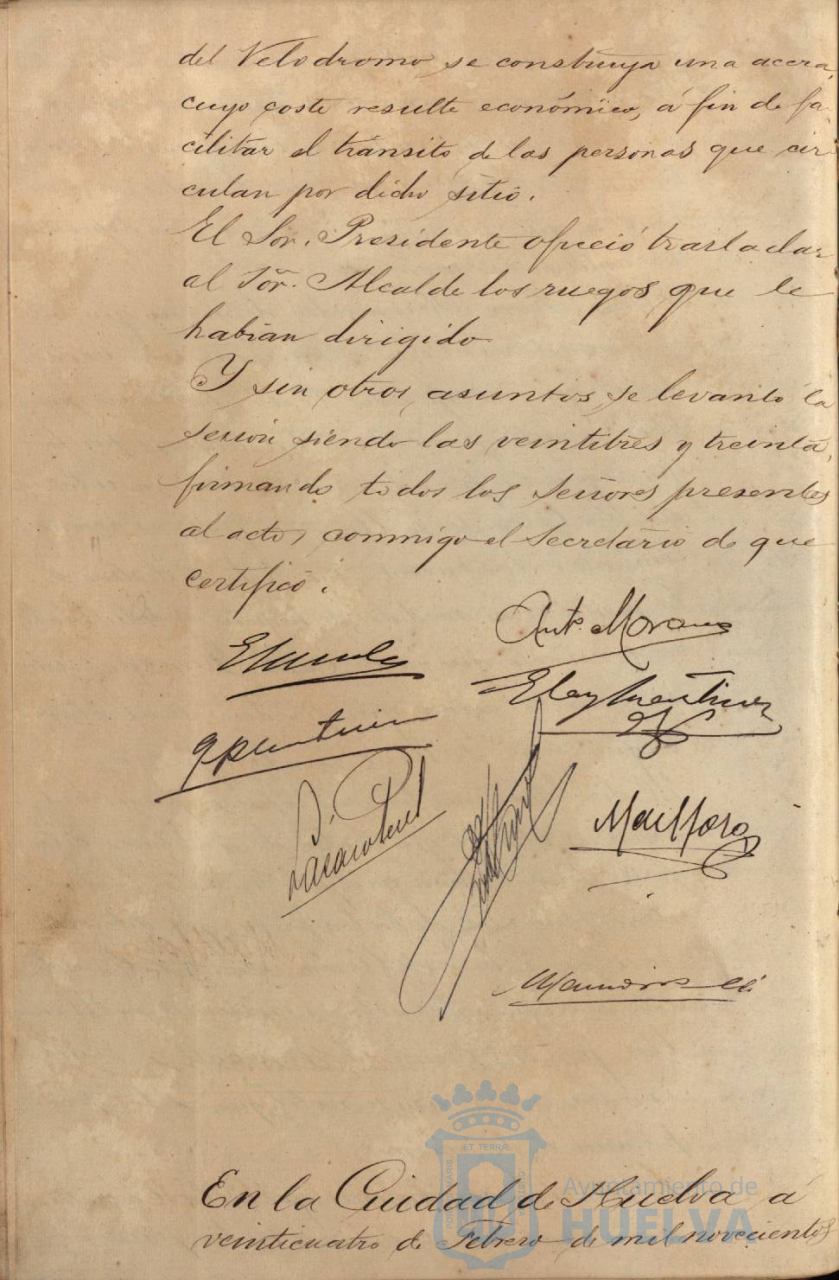 del Velodromo, se construya una acera,
cuyo coste resulte económico, á fin de fa-
cilitar el tránsito de las personas que cir
culan por dicho sitio.
El Sor. Presidente ofreció trasladar
al Sõr. Alcalde los ruegos que le
habian dirigido
Y sin otros asuntos se levantó la
sesion siendo las veintitres y treinta,
firmando todos los Señores presentes
al acto, conmigo el Secretario de que
certifico.
Ant.º Moreno
Eloy Martinez
ET TERRÆ
En la Ciudad de Huelva á
Ayuntamiento de
HUELVA
veinticuatro de Febrero de mil novecientos